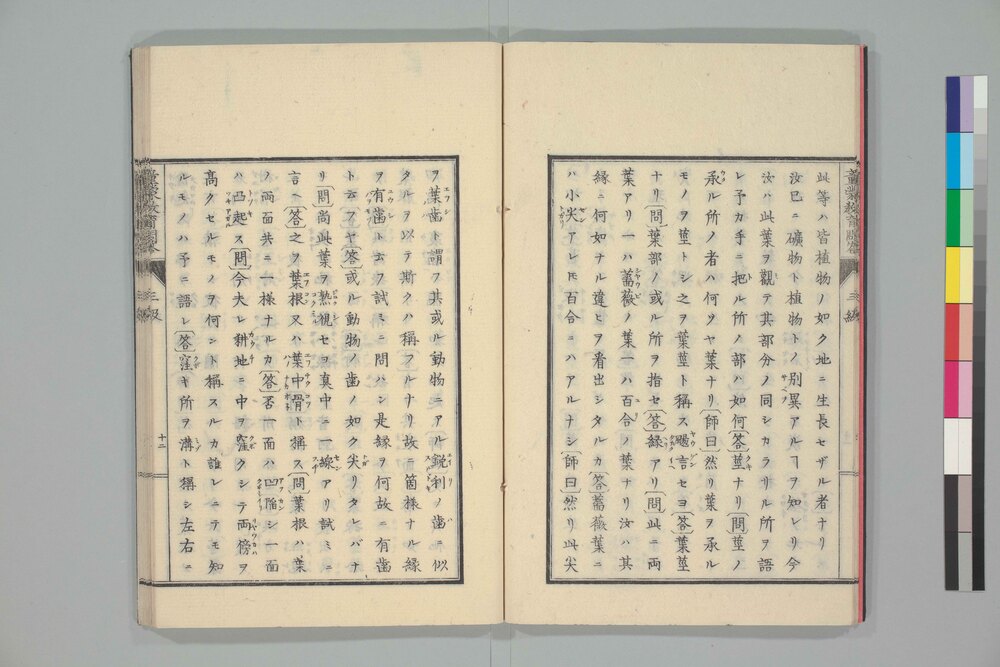 此等ハ皆植物ノ如ク地ニ生長セザル者ナリ
汝已ニ礦物ト植物トノ別異アルヿヲ知レリ今
汝ハ此葉ヲ觀テ其部分ノ同シカラザル所ヲ語
レ予カ手ニ把ル所ノ部ハ如何答莖ナリ問莖ノ
承ル所ノ者ハ何ゾヤ葉ナリ師曰然リ葉ヲ承ル
モノヲ莖トシ之ヲ葉莖ト稱ス颺言セヨ答葉莖
ナリ問葉部ノ或ル所ヲ指セ答緑アリ問此ニ兩
葉アリ一ハ薔薇ノ葉一ハ百合ノ葉ナリ汝ハ其
縁ニ何如ナル違ヒヲ看出シタルカ答薔薇葉ニ
ハ小尖アレ𪜈百合ニハアルナシ師曰然リ此尖
ヲ葉齒ト謂フ其或ル動物ニアル鋭利ノ齒ニ似
タルヲ以テ斯クハ稱フルナリ故ニ箇樣ナル緣
ヲ有齒ト云フ試ミニ問ハン是緣ヲ何故ニ有齒
ト云フヤ答或ル動物ノ齒ノ如ク尖リタレバナ
リ問尚此葉ヲ熟視セヨ真中ニ一線アリ試ミニ
言ヘ答之ヲ葉根又ハ葉中骨ト稱ス問葉根ハ葉
ノ兩面共ニ一樣ナルカ答否一面ハ凹陥シ一面
ハ凸起ス問今夫レ耕地ニ中ヲ窪クシテ兩傍ヲ
高クセルモノヲ何ント稱スルカ誰レニテモ知
ルモノハ予ニ語レ答窪キ所ヲ溝ト稱シ左右ニ
三級
十二